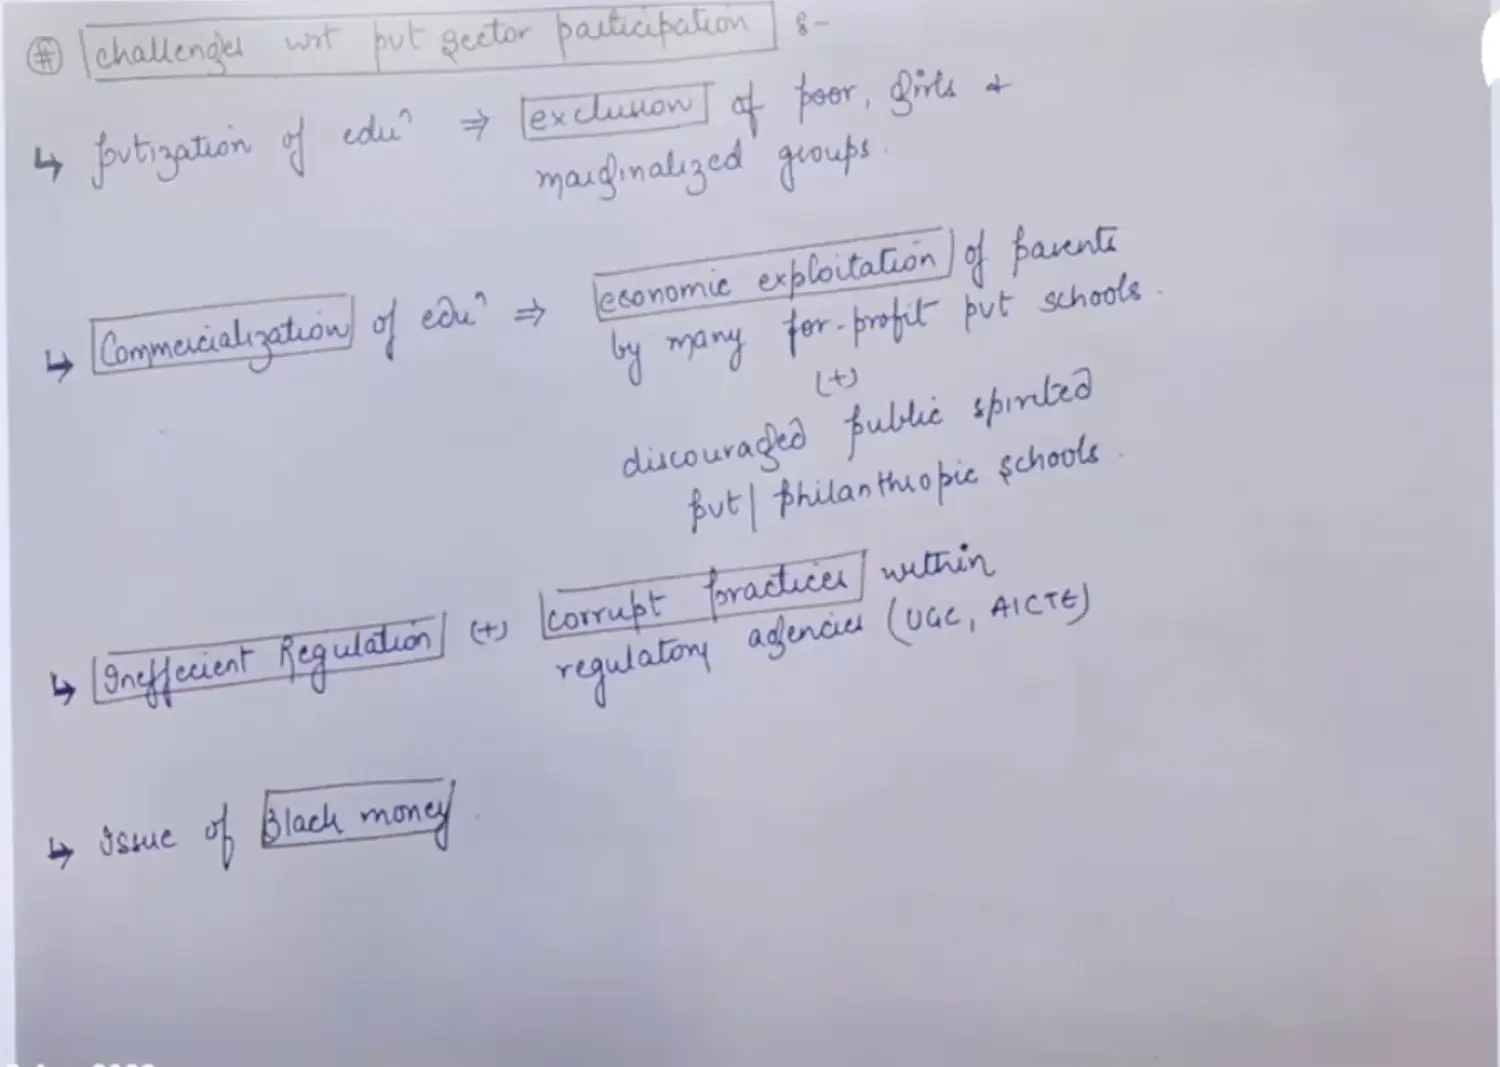 # challenges wrt pvt sector participation :-
↳ pvtization of eduⁿ ⇒ exclusion of poor, girls &
marginalized groups.
↳ Commercialization of eduⁿ ⇒ economic exploitation of parents
by many for-profit pvt schools.
(+)
discouraged public spirited
pvt | philanthropic schools.
↳ Ineffecient Regulation (+) corrupt practices within
regulatory agencies (UGC, AICTE)
↳ Issue of Black money.